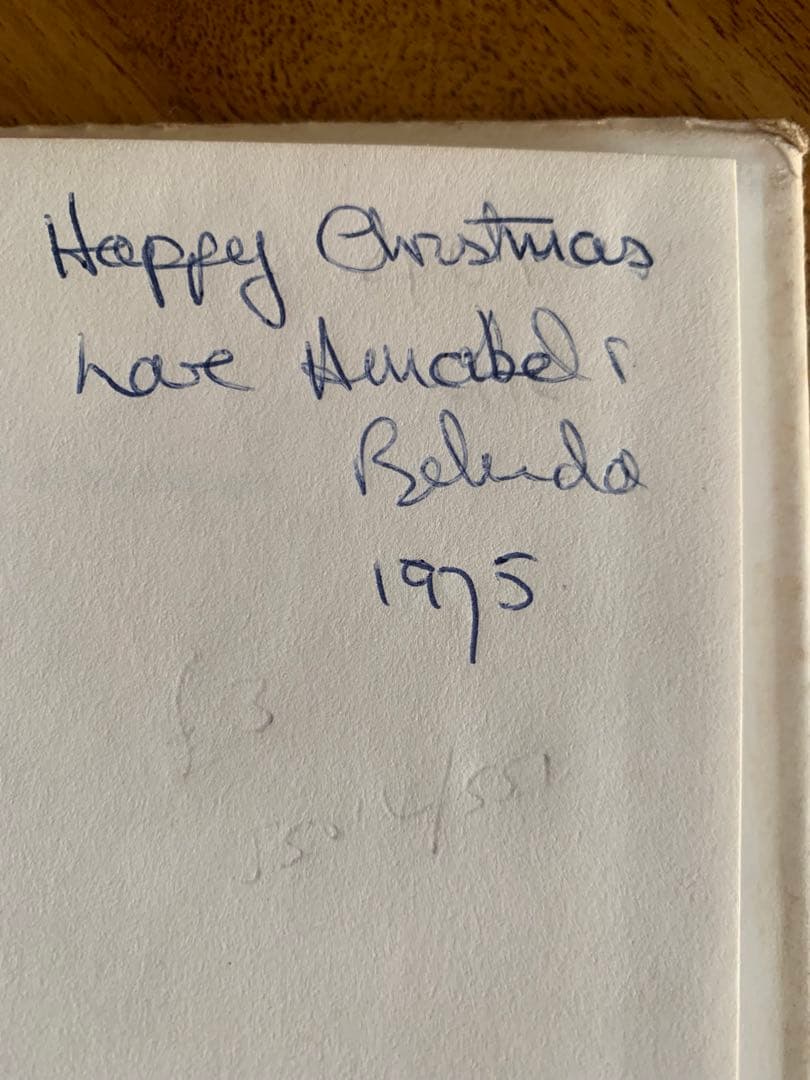 Happy Christmas
Love Annabel &
Belinda
1975
£3